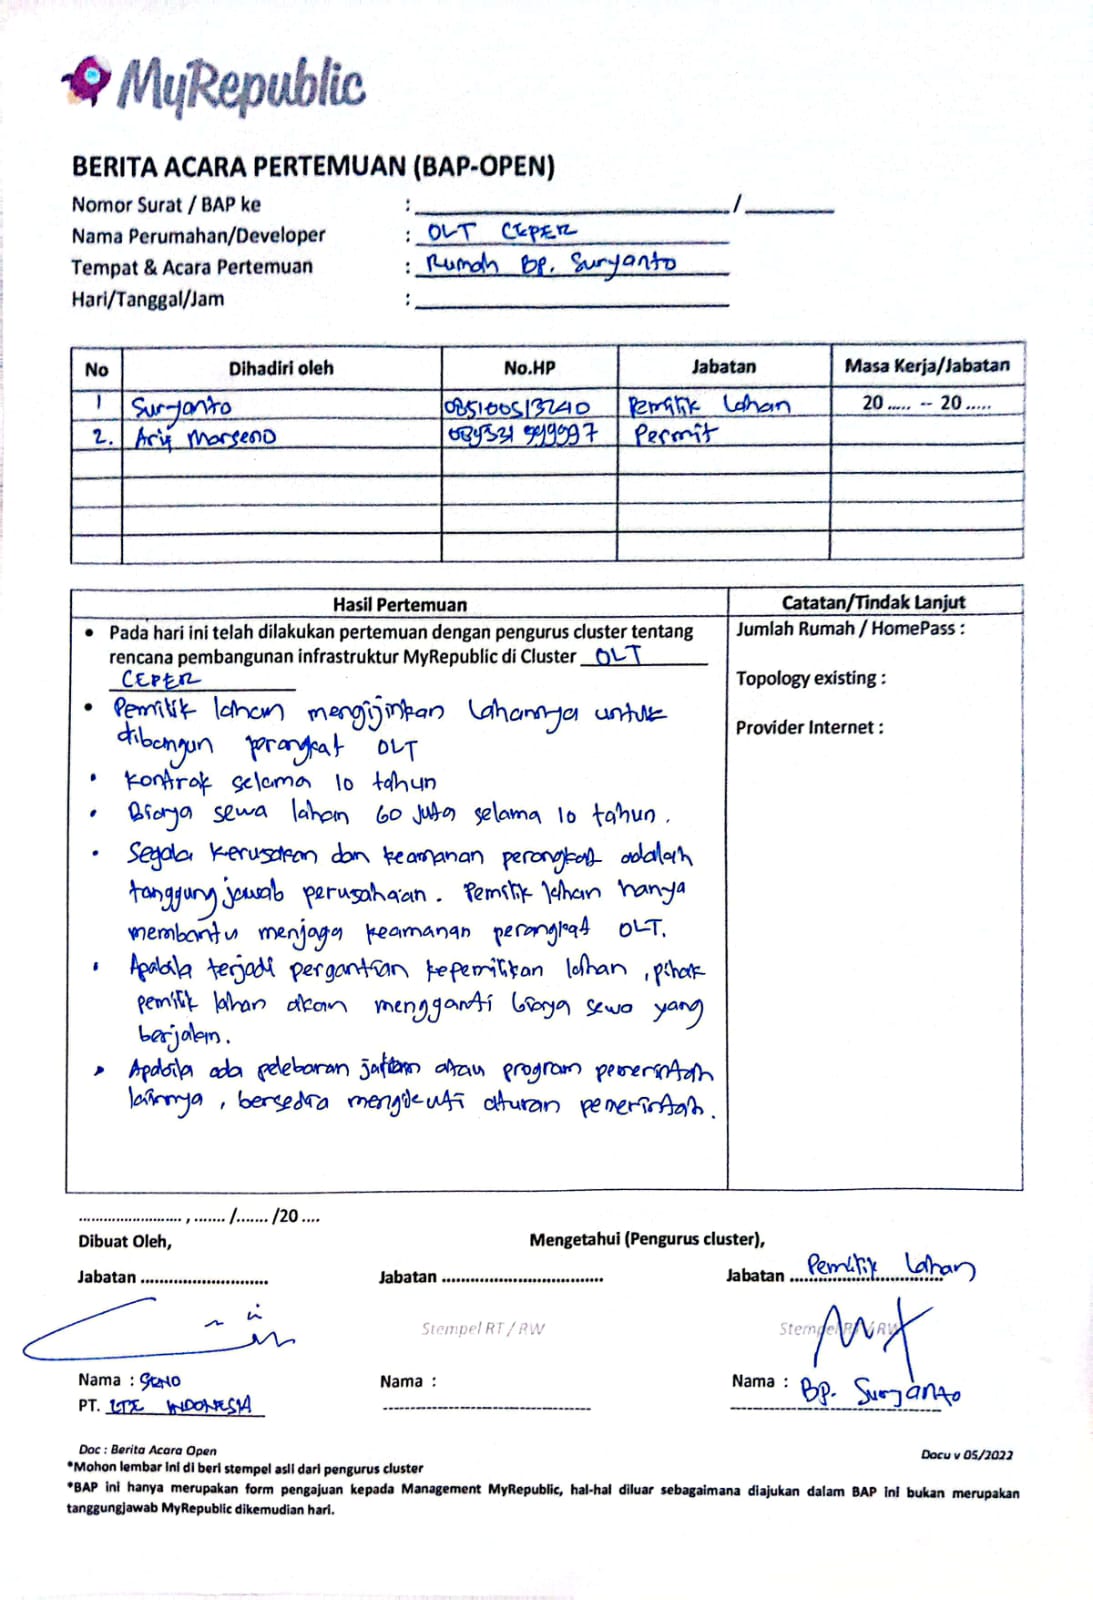 MyRepublic
BERITA ACARA PERTEMUAN (BAP-OPEN)
Nomor Surat / BAP ke : /
Nama Perumahan/Developer : OLT CEPER
Tempat & Acara Pertemuan : Rumah BP. Suryanto
Hari/Tanggal/Jam :
No Dihadiri oleh No.HP Jabatan Masa Kerja/Jabatan
1 Suryanto 085100513240 Pemilik Lahan 20 ..... -- 20 .....
2. Arif Marseno Permit
Hasil Pertemuan Catatan/Tindak Lanjut
• Pada hari ini telah dilakukan pertemuan dengan pengurus cluster tentang
rencana pembangunan infrastruktur MyRepublic di Cluster OLT
CEPER
• Pemilik lahan mengijinkan Lahannya untuk
dibangun perangkat OLT
• Kontrak selama 10 tahun
• Biaya sewa lahan 60 juta selama 10 tahun.
• Segala kerusakan dan keamanan perangkat adalah
tanggung jawab perusahaan. Pemilik lahan hanya
membantu menjaga keamanan perangkat OLT.
• Apabila terjadi pergantian kepemilikan lahan, pihak
pemilik lahan akan mengganti biaya sewa yang
berjalan.
• Apabila ada pelebaran jalan atau program pemerintah
lainnya, bersedia mengikuti aturan pemerintah.
Jumlah Rumah / HomePass :
Topology existing :
Provider Internet :
.......................... , ....... /....... /20 ....
Dibuat Oleh, Mengetahui (Pengurus cluster),
Jabatan ........................... Jabatan .................................. Jabatan Pemilik Lahan
Stempel RT / RW Stempel RT / RW
Nama : SENO Nama : Nama : Bp. Suryanto
PT. LTE INDONESIA
Doc : Berita Acara Open Docu v 05/2022
*Mohon lembar ini di beri stempel asli dari pengurus cluster
*BAP ini hanya merupakan form pengajuan kepada Management MyRepublic, hal-hal diluar sebagaimana diajukan dalam BAP ini bukan merupakan
tanggungjawab MyRepublic dikemudian hari.